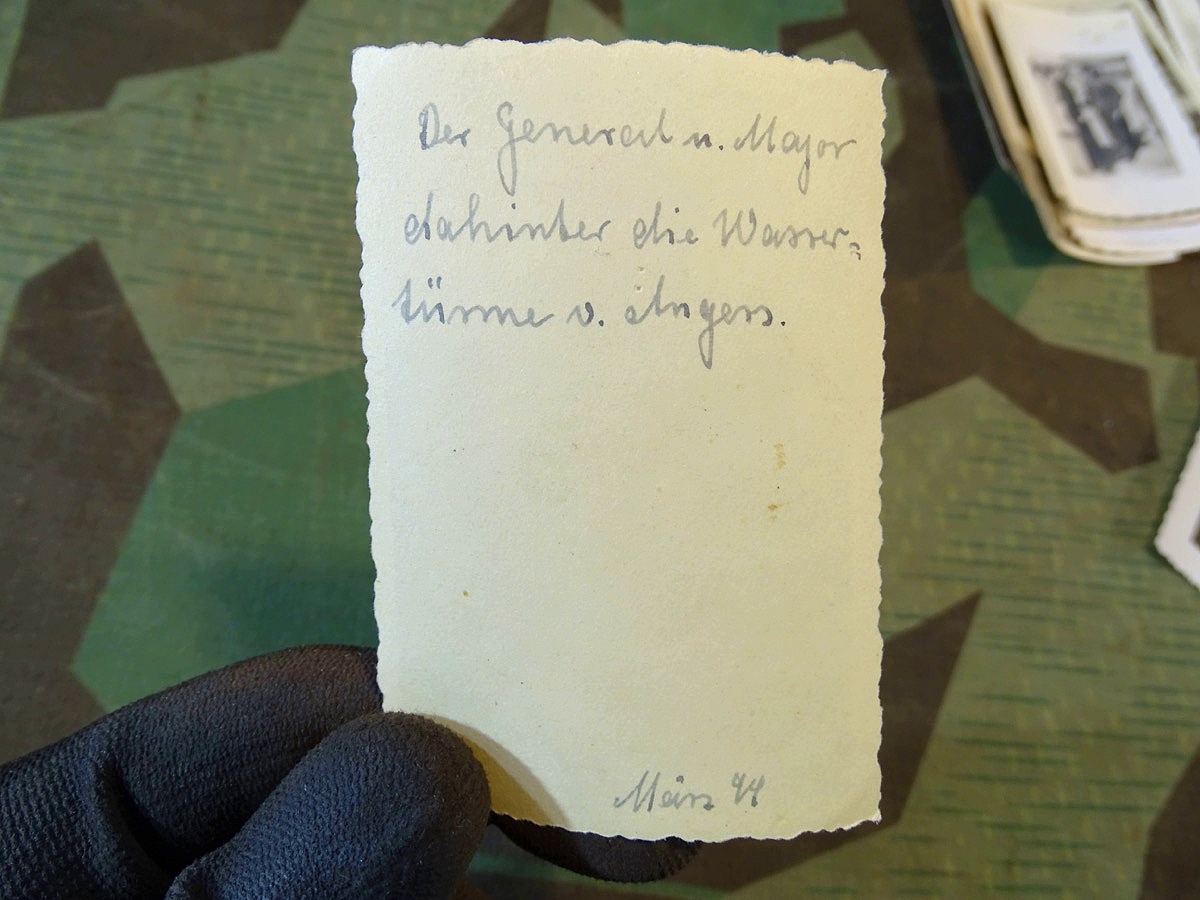 Der General u. Major
dahinter die Wasser=
türme v. Angers.
März 44